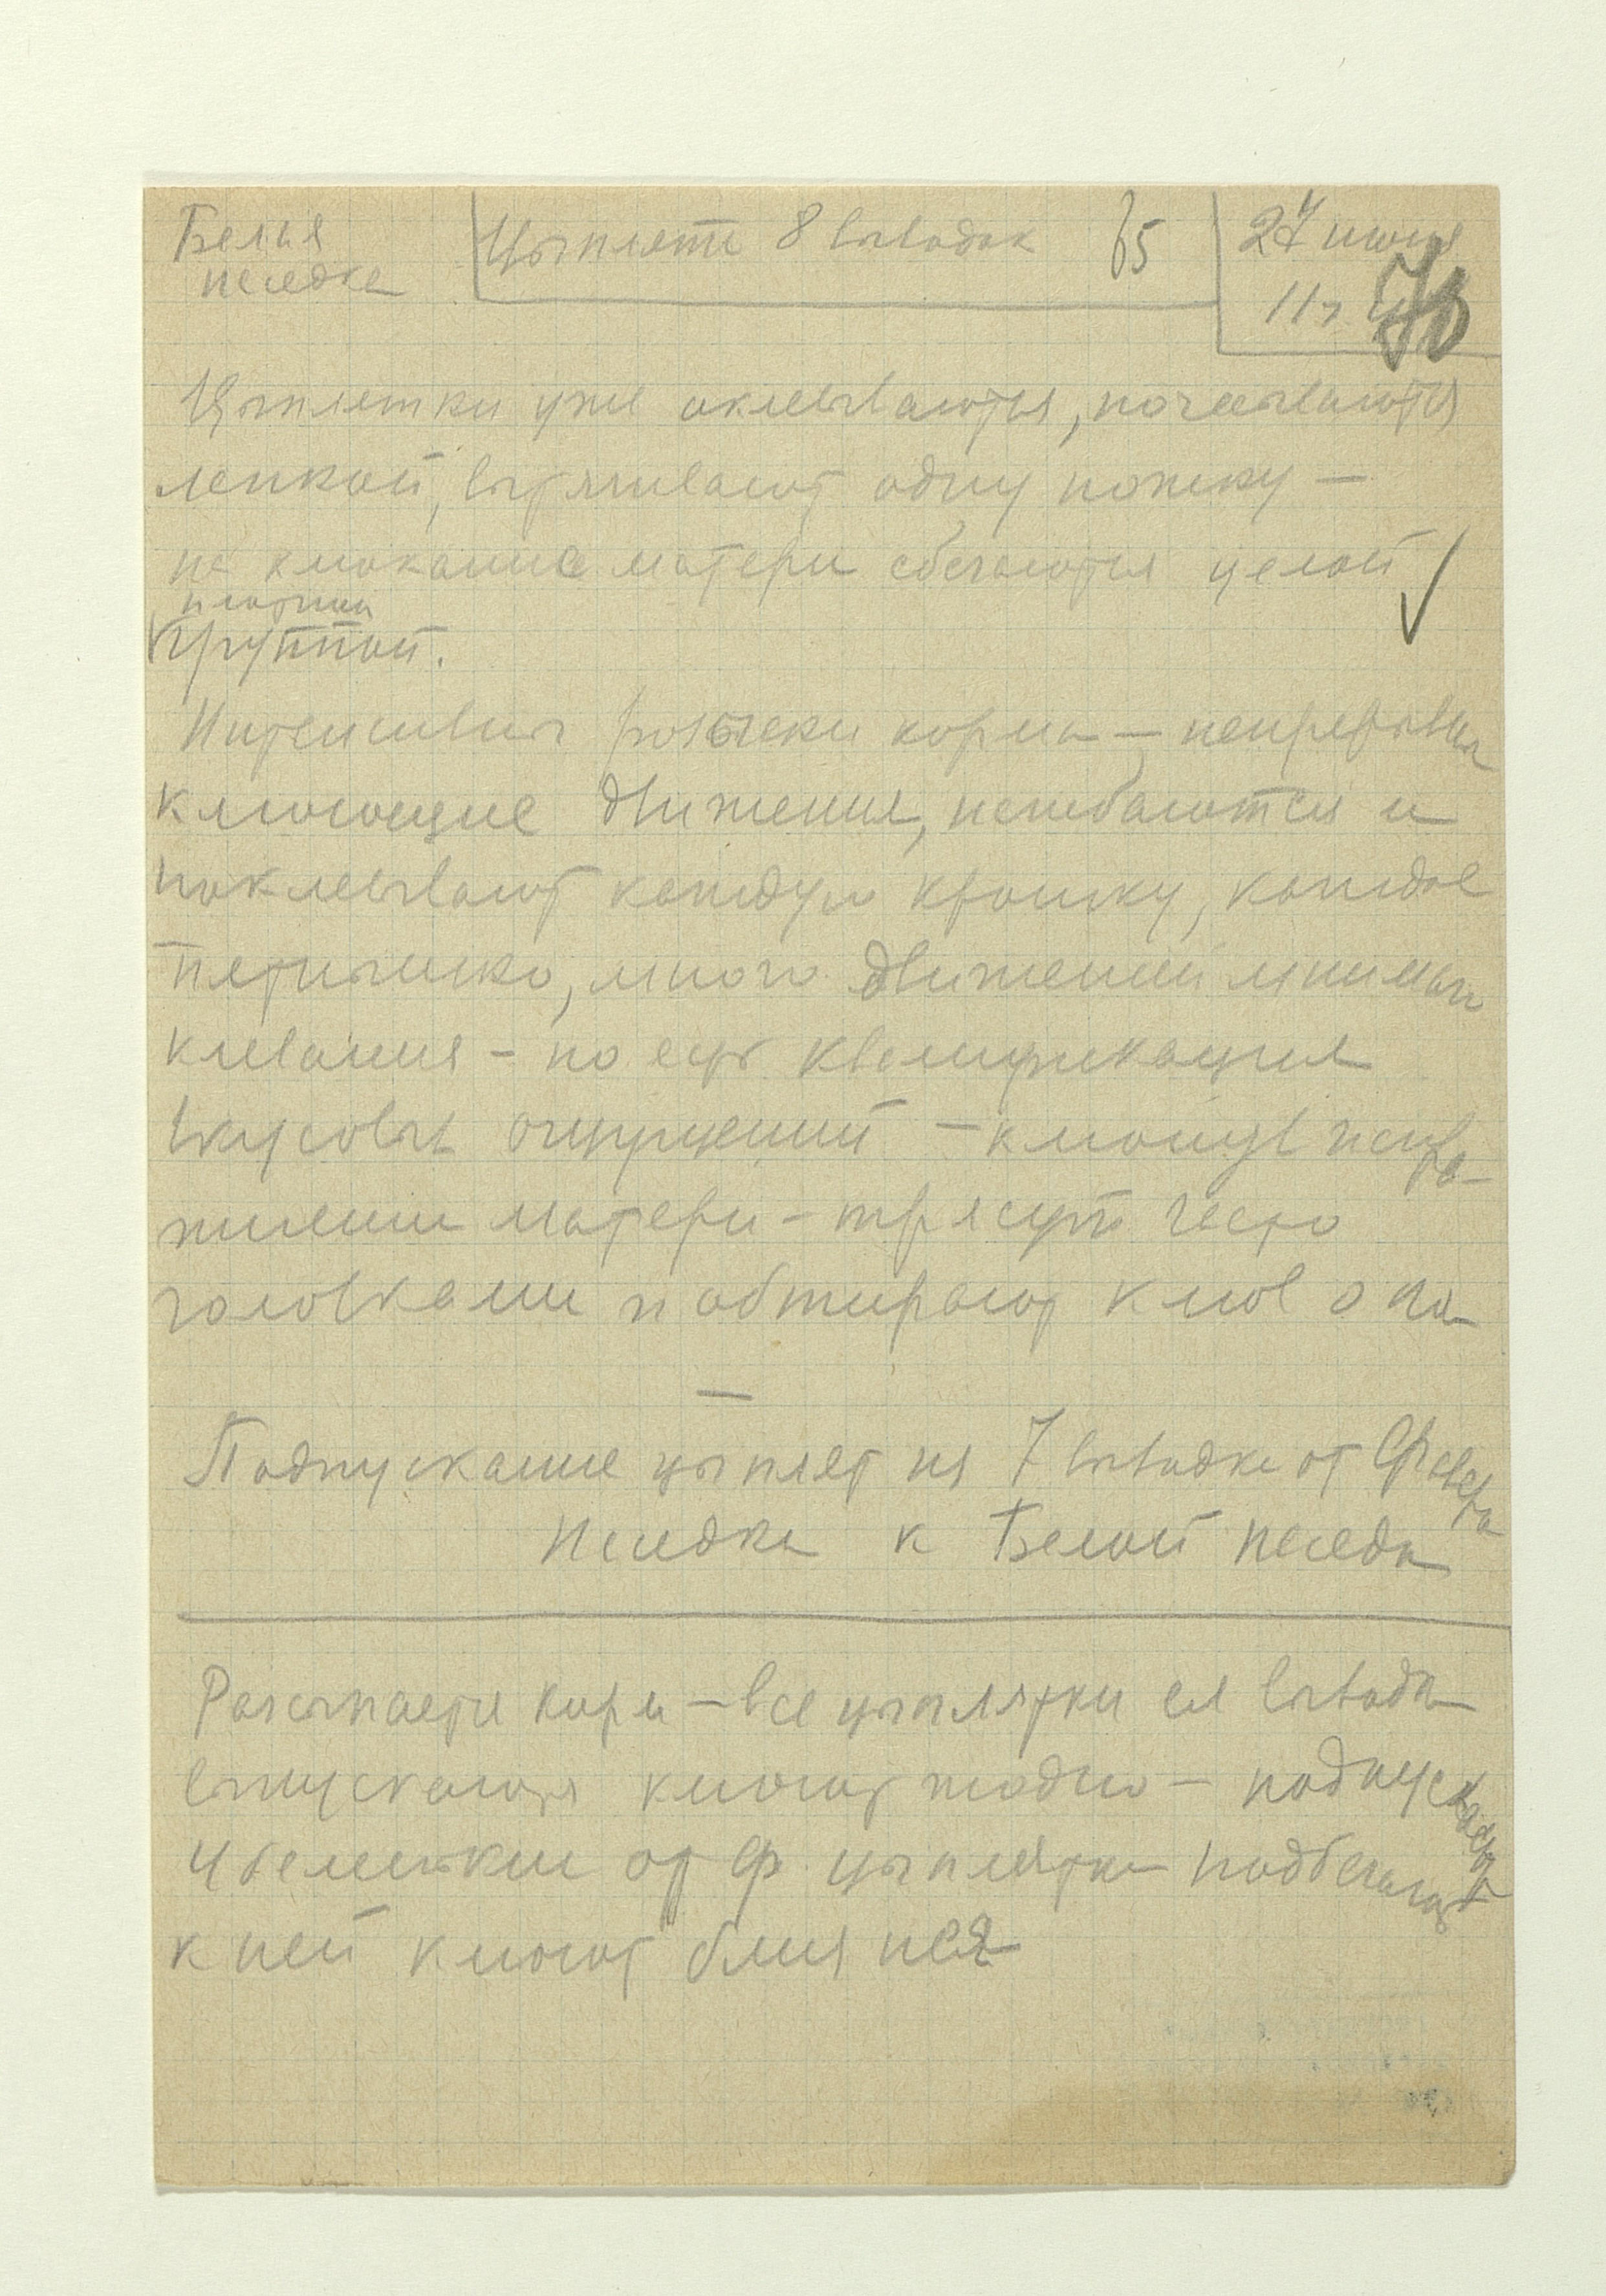 Белая
наседка
Цыплята 8 выводок
65
27 июня
11 ч
70
Цыплятки уже оклевываются, почесываются
лапкой, вытягивают одну ножку —
на клохание матери сбегаются целой
плотной
группой.
Интенсивны розыски корма — непрерывны
клюющие движения, нагибаются и
поклевывают каждую крошку, каждое
пятнышко, много движений мнимого
клевания - но есть квалификация
вкусовых ощущений — клюют
матери - трясут часто
головками и обтирают клюв о по
—
Подпускание цыплят из 7 выводка от Фавера
Наседка к Белой наседке
Рассыпается корм — все цыплятки ея выводка
выпускаются клюют жадно — подпускают
4 беленькие от Ф. цыплятки подбегают
к ней клюют близ нея